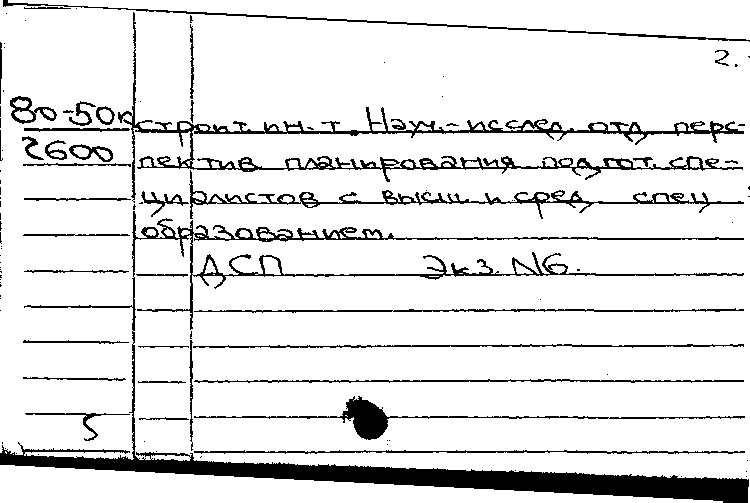 2.
80-50к строит. ин. т. Науч.-исслед. отд. перс-
2600 пектив планирования подгот. спе-
циалистов с высш и сред. спец
образованием.
ДСП Экз. N6.
5